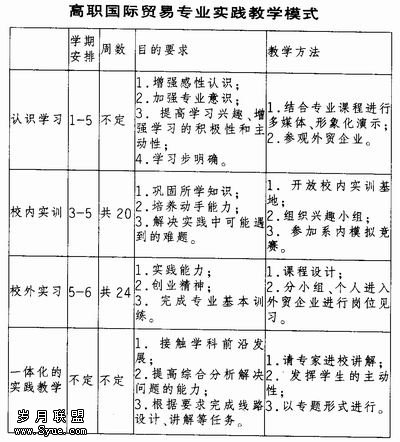 高职国际贸易专业实践教学模式
学期安排 周数 目的要求 教学方法
认识学习 1-5 不定
1.增强感性认识；
2.加强专业意识；
3. 提高学习兴趣、增
强学习的积极性和主
动性；
4.学习步明确。
1.结合专业课程进行
多媒体、形象化演示；
2.参观外贸企业。
校内实训 3-5 共20
1.巩固所学知识；
2.培养动手能力；
3.解决实践中可能遇
到的难题。
1. 开放校内实训基
地；
2.组织兴趣小组；
3. 参加系内模拟竞
赛。
校外实习 5-6 共24
1.实践能力；
2.创业精神；
3. 完成专业基本训
练。
1.课程设计；
2.分小组、个人进入
外贸企业进行岗位见
习。
一体化的
实践教学 不定 不定
1. 接触学科前沿发
展；
2.提高综合分析解决
问题的能力；
3.根据要求完成线路
设计、讲解等任务。
1.请专家进校讲解；
2. 发挥学生的主动
性；
3.以专题形式进行。
岁月联盟
www.Syue.com